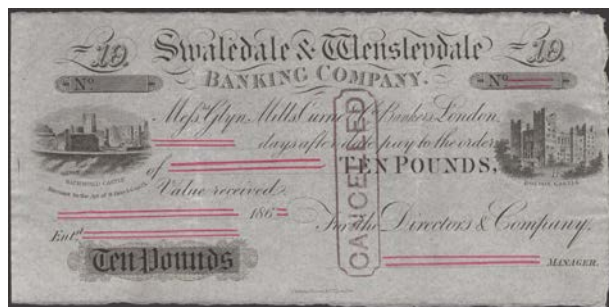 £10. Swaledale & Wensleydale £10.
Nº BANKING COMPANY. Nº
Messrs Glyn, Mills, Currie & Co Bankers London.
days after date pay to the order
of TEN POUNDS,
Value received.
186
For the Directors & Company.
Entd.
Ten Pounds
MANAGER.
CANCELLED
RICHMOND CASTLE
BOLTON CASTLE